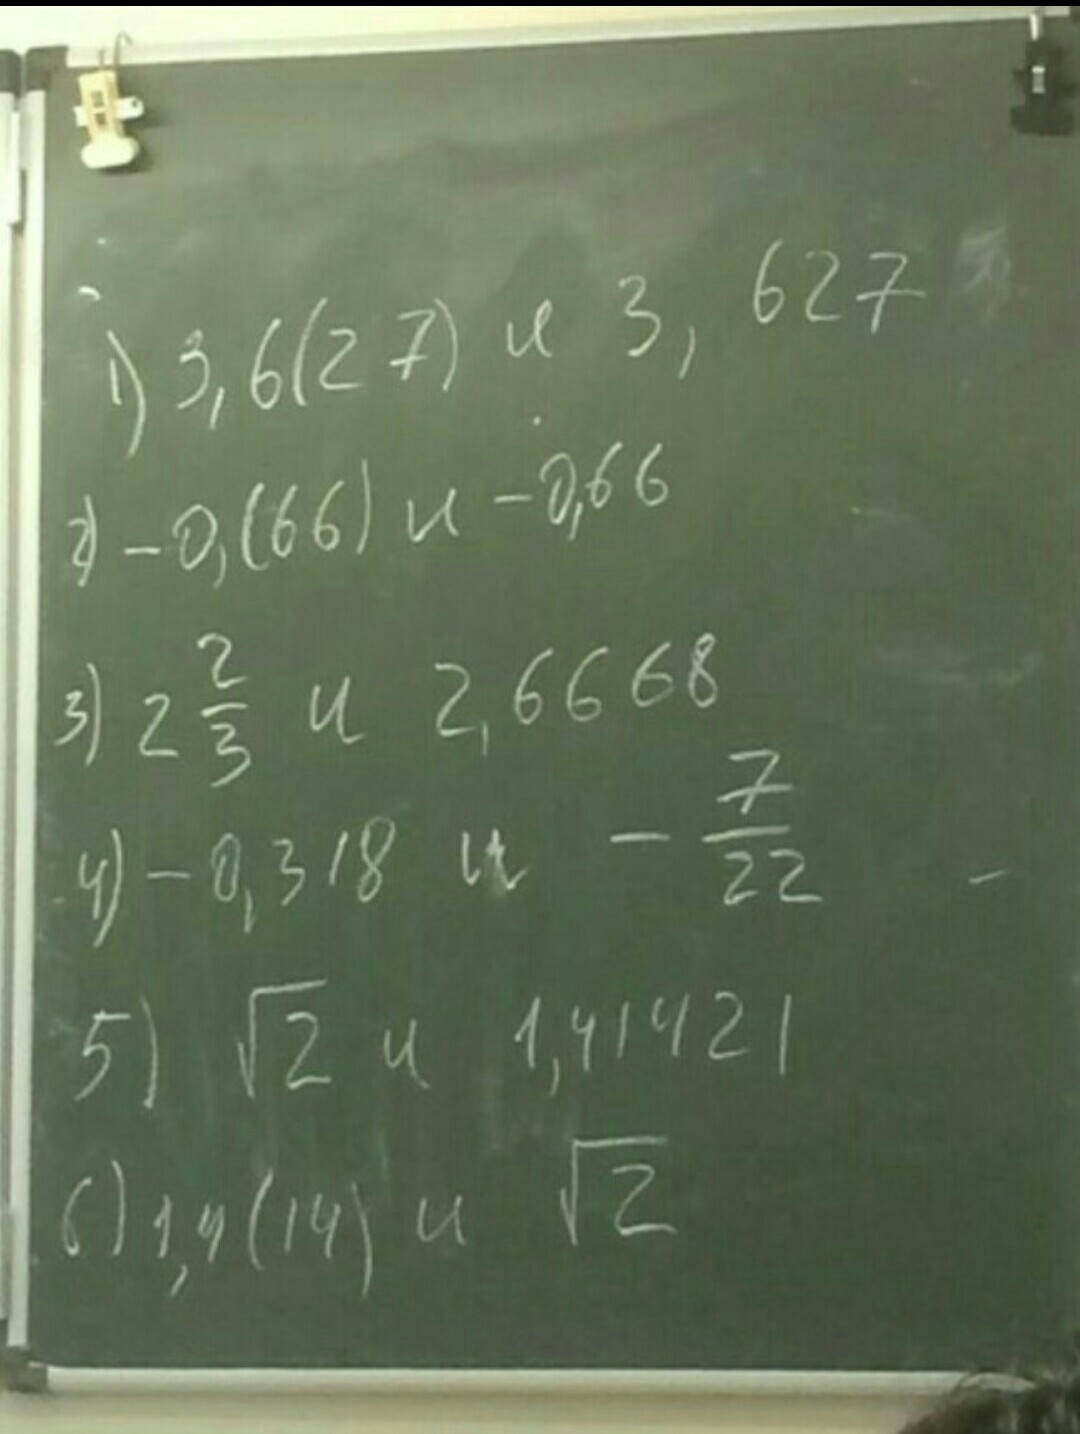 1) 3,6(27) и 3, 627
2) -0,(66) и -0,66
3) 2 2/3 и 2,6668
4) -0,318 и - 7/22
5) √2 и 1,41421
6) 1,4(14) и √2